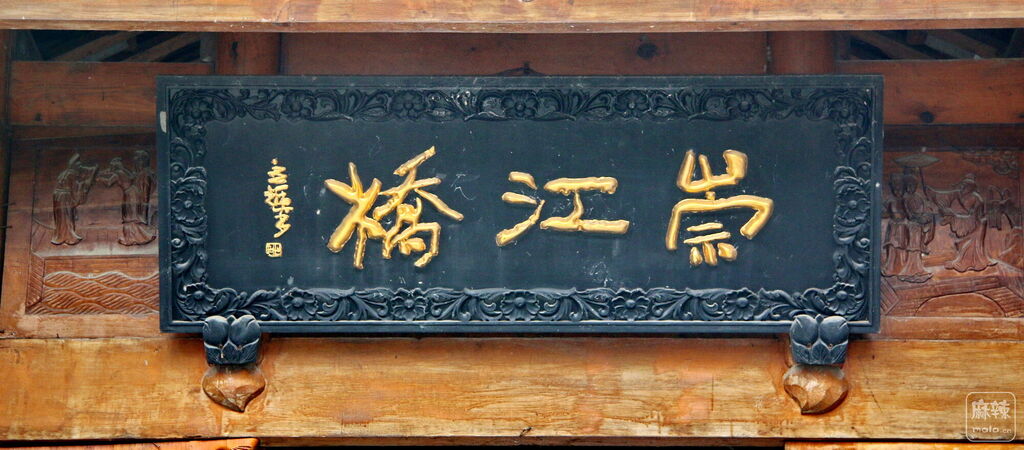 崇江橋
麻辣
mala.cn